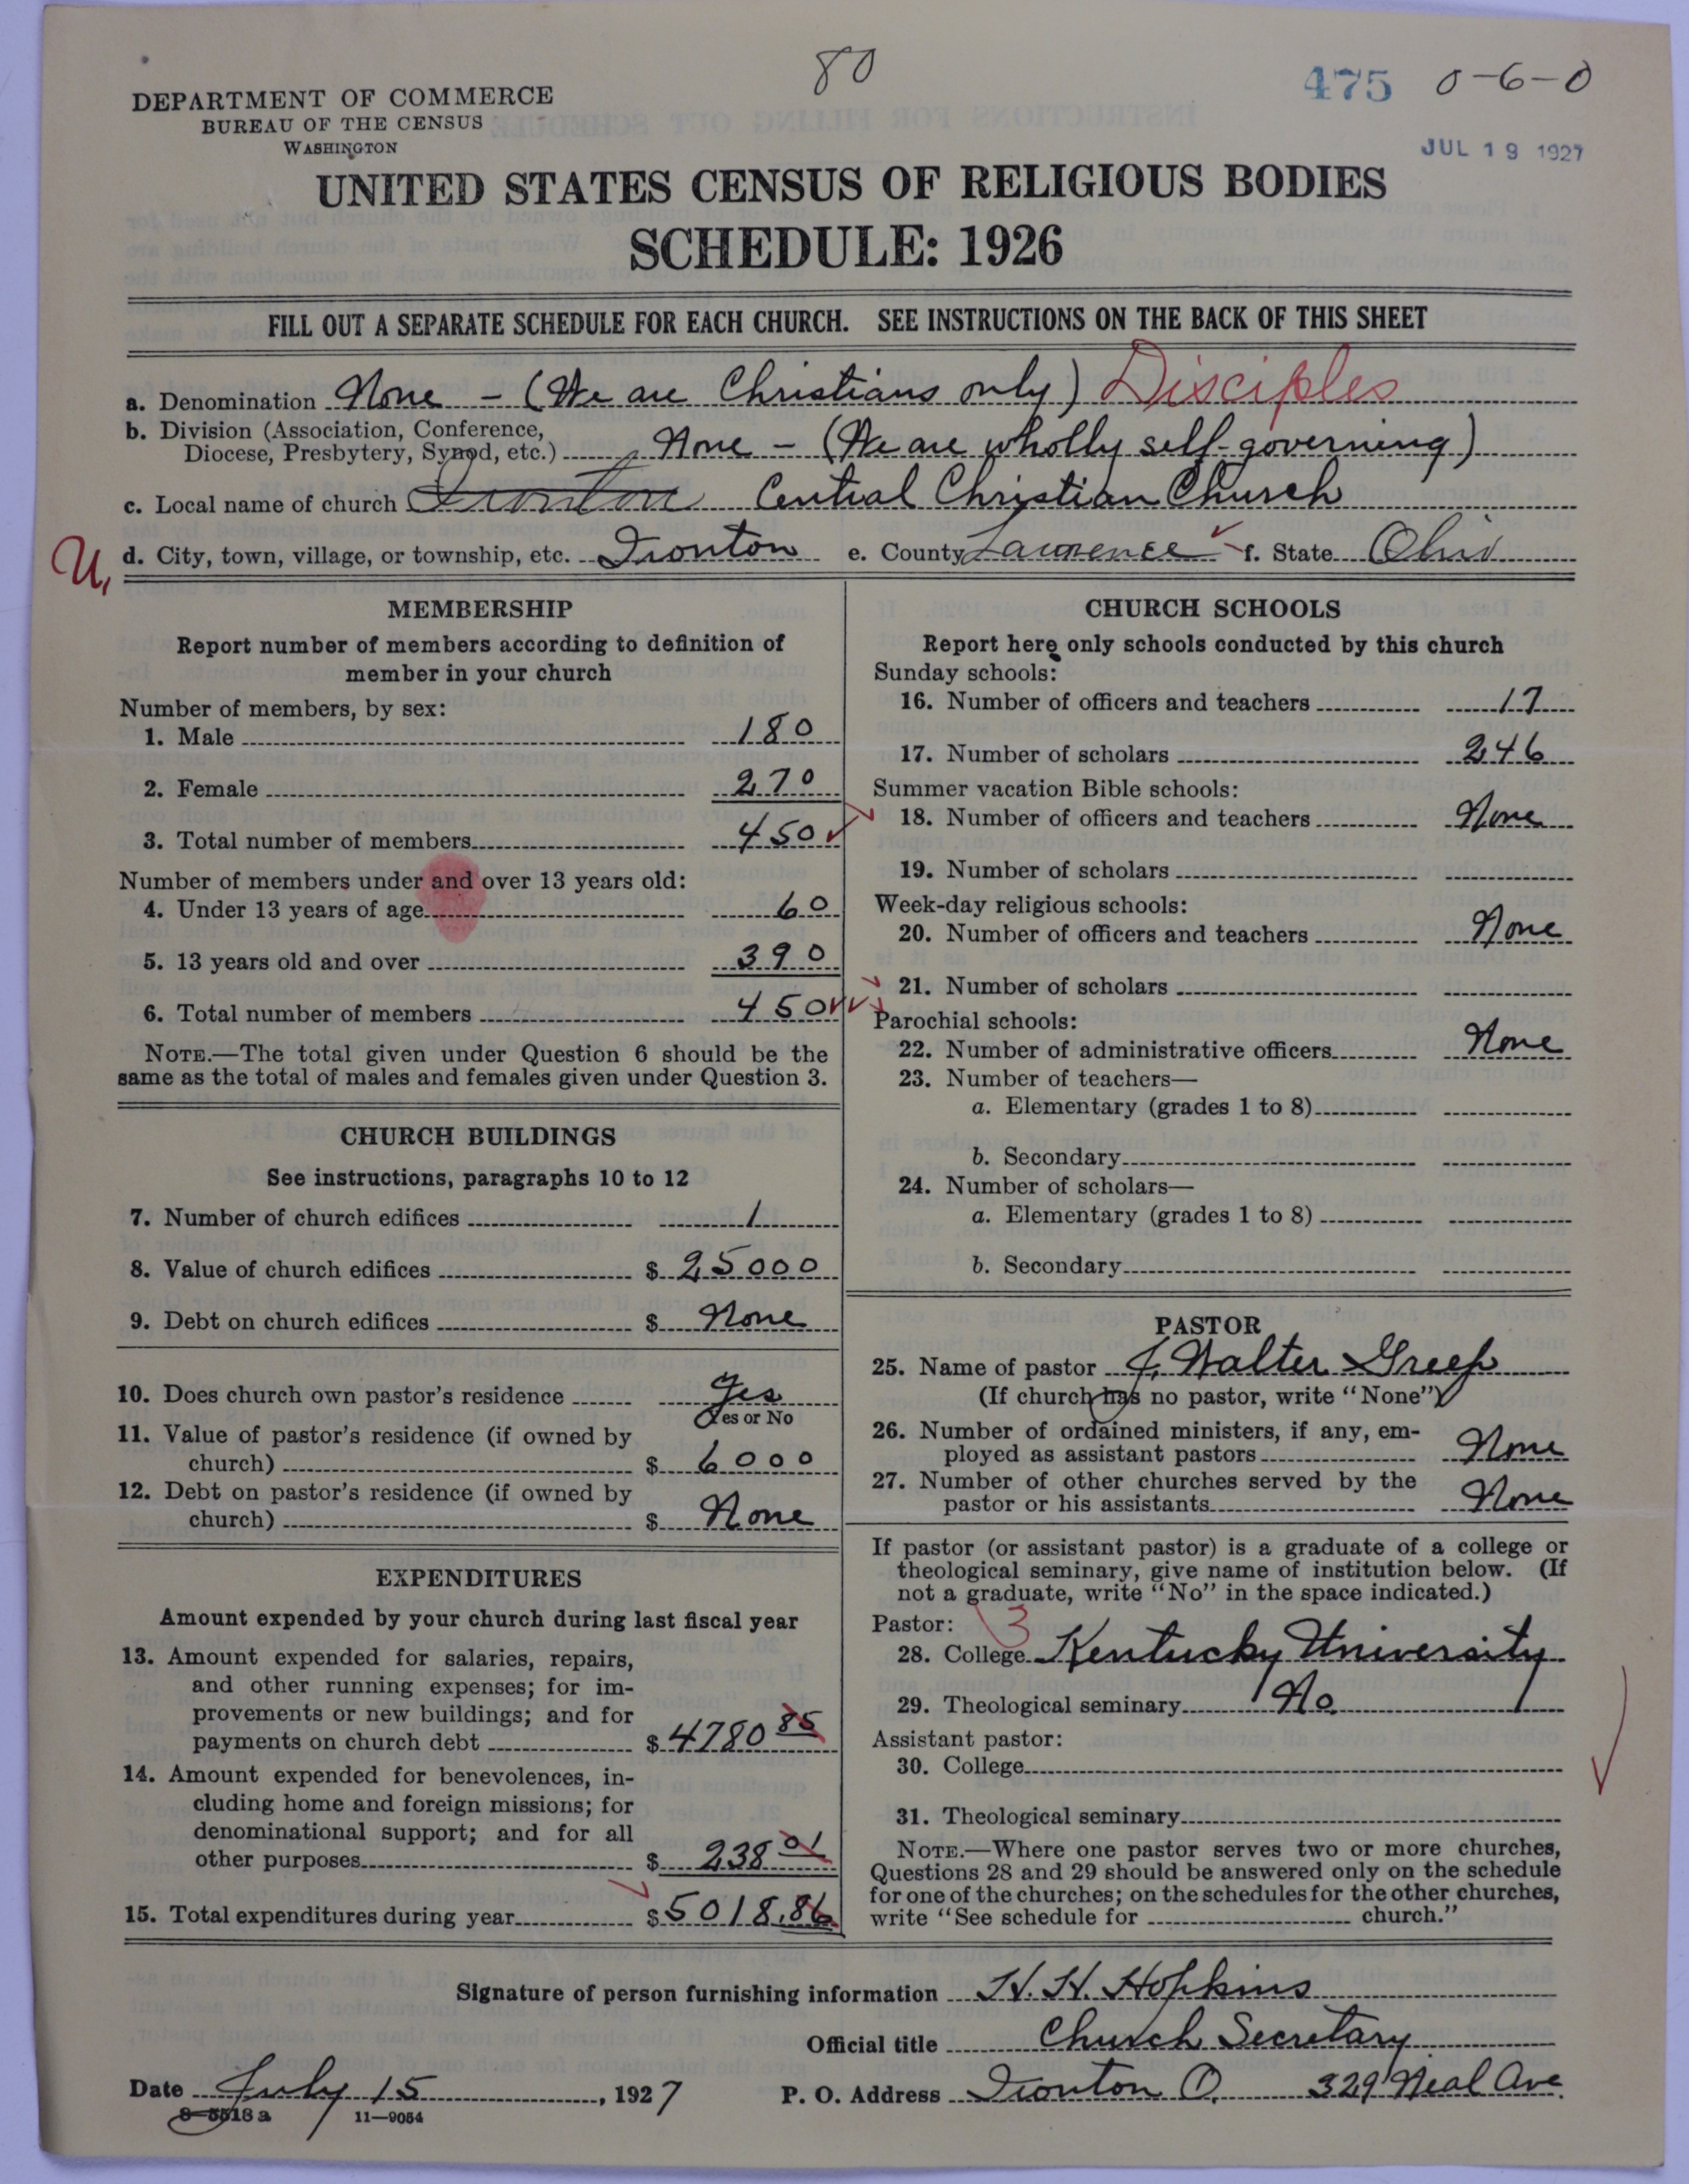 80
475 0-6-0
DEPARTMENT OF COMMERCE
BUREAU OF THE CENSUS
WASHINGTON
JUL 19 1927
UNITED STATES CENSUS OF RELIGIOUS BODIES
SCHEDULE: 1926
FILL OUT A SEPARATE SCHEDULE FOR EACH CHURCH. SEE INSTRUCTIONS ON THE BACK OF THIS SHEET
a. Denomination None - (We are Christians only) Disciples
b. Division (Association, Conference,
Diocese, Presbytery, Synod, etc.) None - (We are wholly self-governing)
c. Local name of church Ironton Central Christian Church
U, d. City, town, village, or township, etc. Ironton e. County Lawrence f. State Ohio
MEMBERSHIP
Report number of members according to definition of
member in your church
Number of members, by sex:
1. Male 180
2. Female 270
3. Total number of members 450
Number of members under and over 13 years old:
4. Under 13 years of age 60
5. 13 years old and over 390
6. Total number of members 450
NOTE.—The total given under Question 6 should be the
same as the total of males and females given under Question 3.
CHURCH BUILDINGS
See instructions, paragraphs 10 to 12
7. Number of church edifices 1
8. Value of church edifices $ 25000
9. Debt on church edifices $ None
10. Does church own pastor's residence Yes
Yes or No
11. Value of pastor's residence (if owned by
church) $ 6000
12. Debt on pastor's residence (if owned by
church) $ None
EXPENDITURES
Amount expended by your church during last fiscal year
13. Amount expended for salaries, repairs,
and other running expenses; for im-
provements or new buildings; and for
payments on church debt $ 4780 85
14. Amount expended for benevolences, in-
cluding home and foreign missions; for
denominational support; and for all
other purposes $ 238 01
15. Total expenditures during year $ 5018.86
CHURCH SCHOOLS
Report here only schools conducted by this church
Sunday schools:
16. Number of officers and teachers 17
17. Number of scholars 246
Summer vacation Bible schools:
18. Number of officers and teachers None
19. Number of scholars
Week-day religious schools:
20. Number of officers and teachers None
21. Number of scholars
Parochial schools:
22. Number of administrative officers None
23. Number of teachers—
a. Elementary (grades 1 to 8)
b. Secondary
24. Number of scholars—
a. Elementary (grades 1 to 8)
b. Secondary
PASTOR
25. Name of pastor J. Walter Greep
(If church has no pastor, write "None")
26. Number of ordained ministers, if any, em-
ployed as assistant pastors None
27. Number of other churches served by the
pastor or his assistants None
If pastor (or assistant pastor) is a graduate of a college or
theological seminary, give name of institution below. (If
not a graduate, write "No" in the space indicated.)
Pastor: 3
28. College Kentucky University
29. Theological seminary No
Assistant pastor:
30. College
31. Theological seminary
NOTE.—Where one pastor serves two or more churches,
Questions 28 and 29 should be answered only on the schedule
for one of the churches; on the schedules for the other churches,
write "See schedule for church."
Signature of person furnishing information H. H. Hopkins
Official title Church Secretary
Date July 15, 1927 P. O. Address Ironton O. 329 Neal Ave.
8-5518 a 11—9054